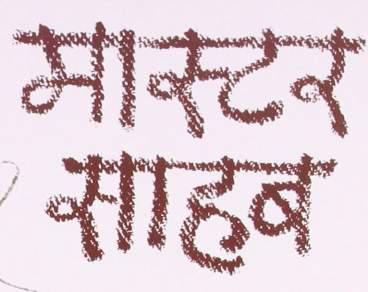 मास्टर
साहब